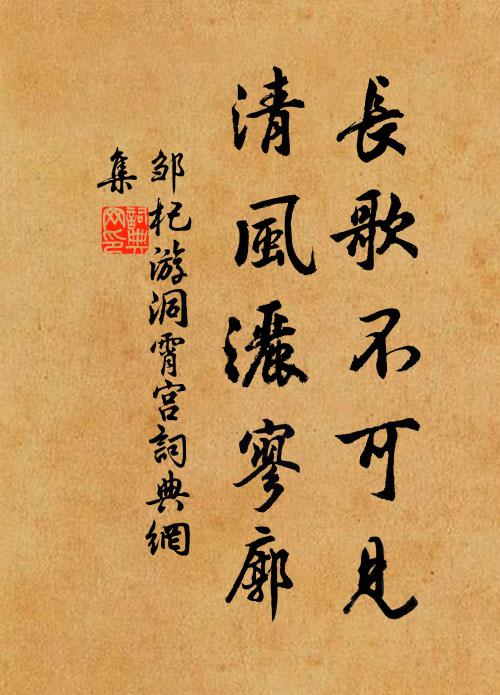 長歌不可見
清風灑寥廓
邹杞游洞霄宫詞典網
集
詞典網印